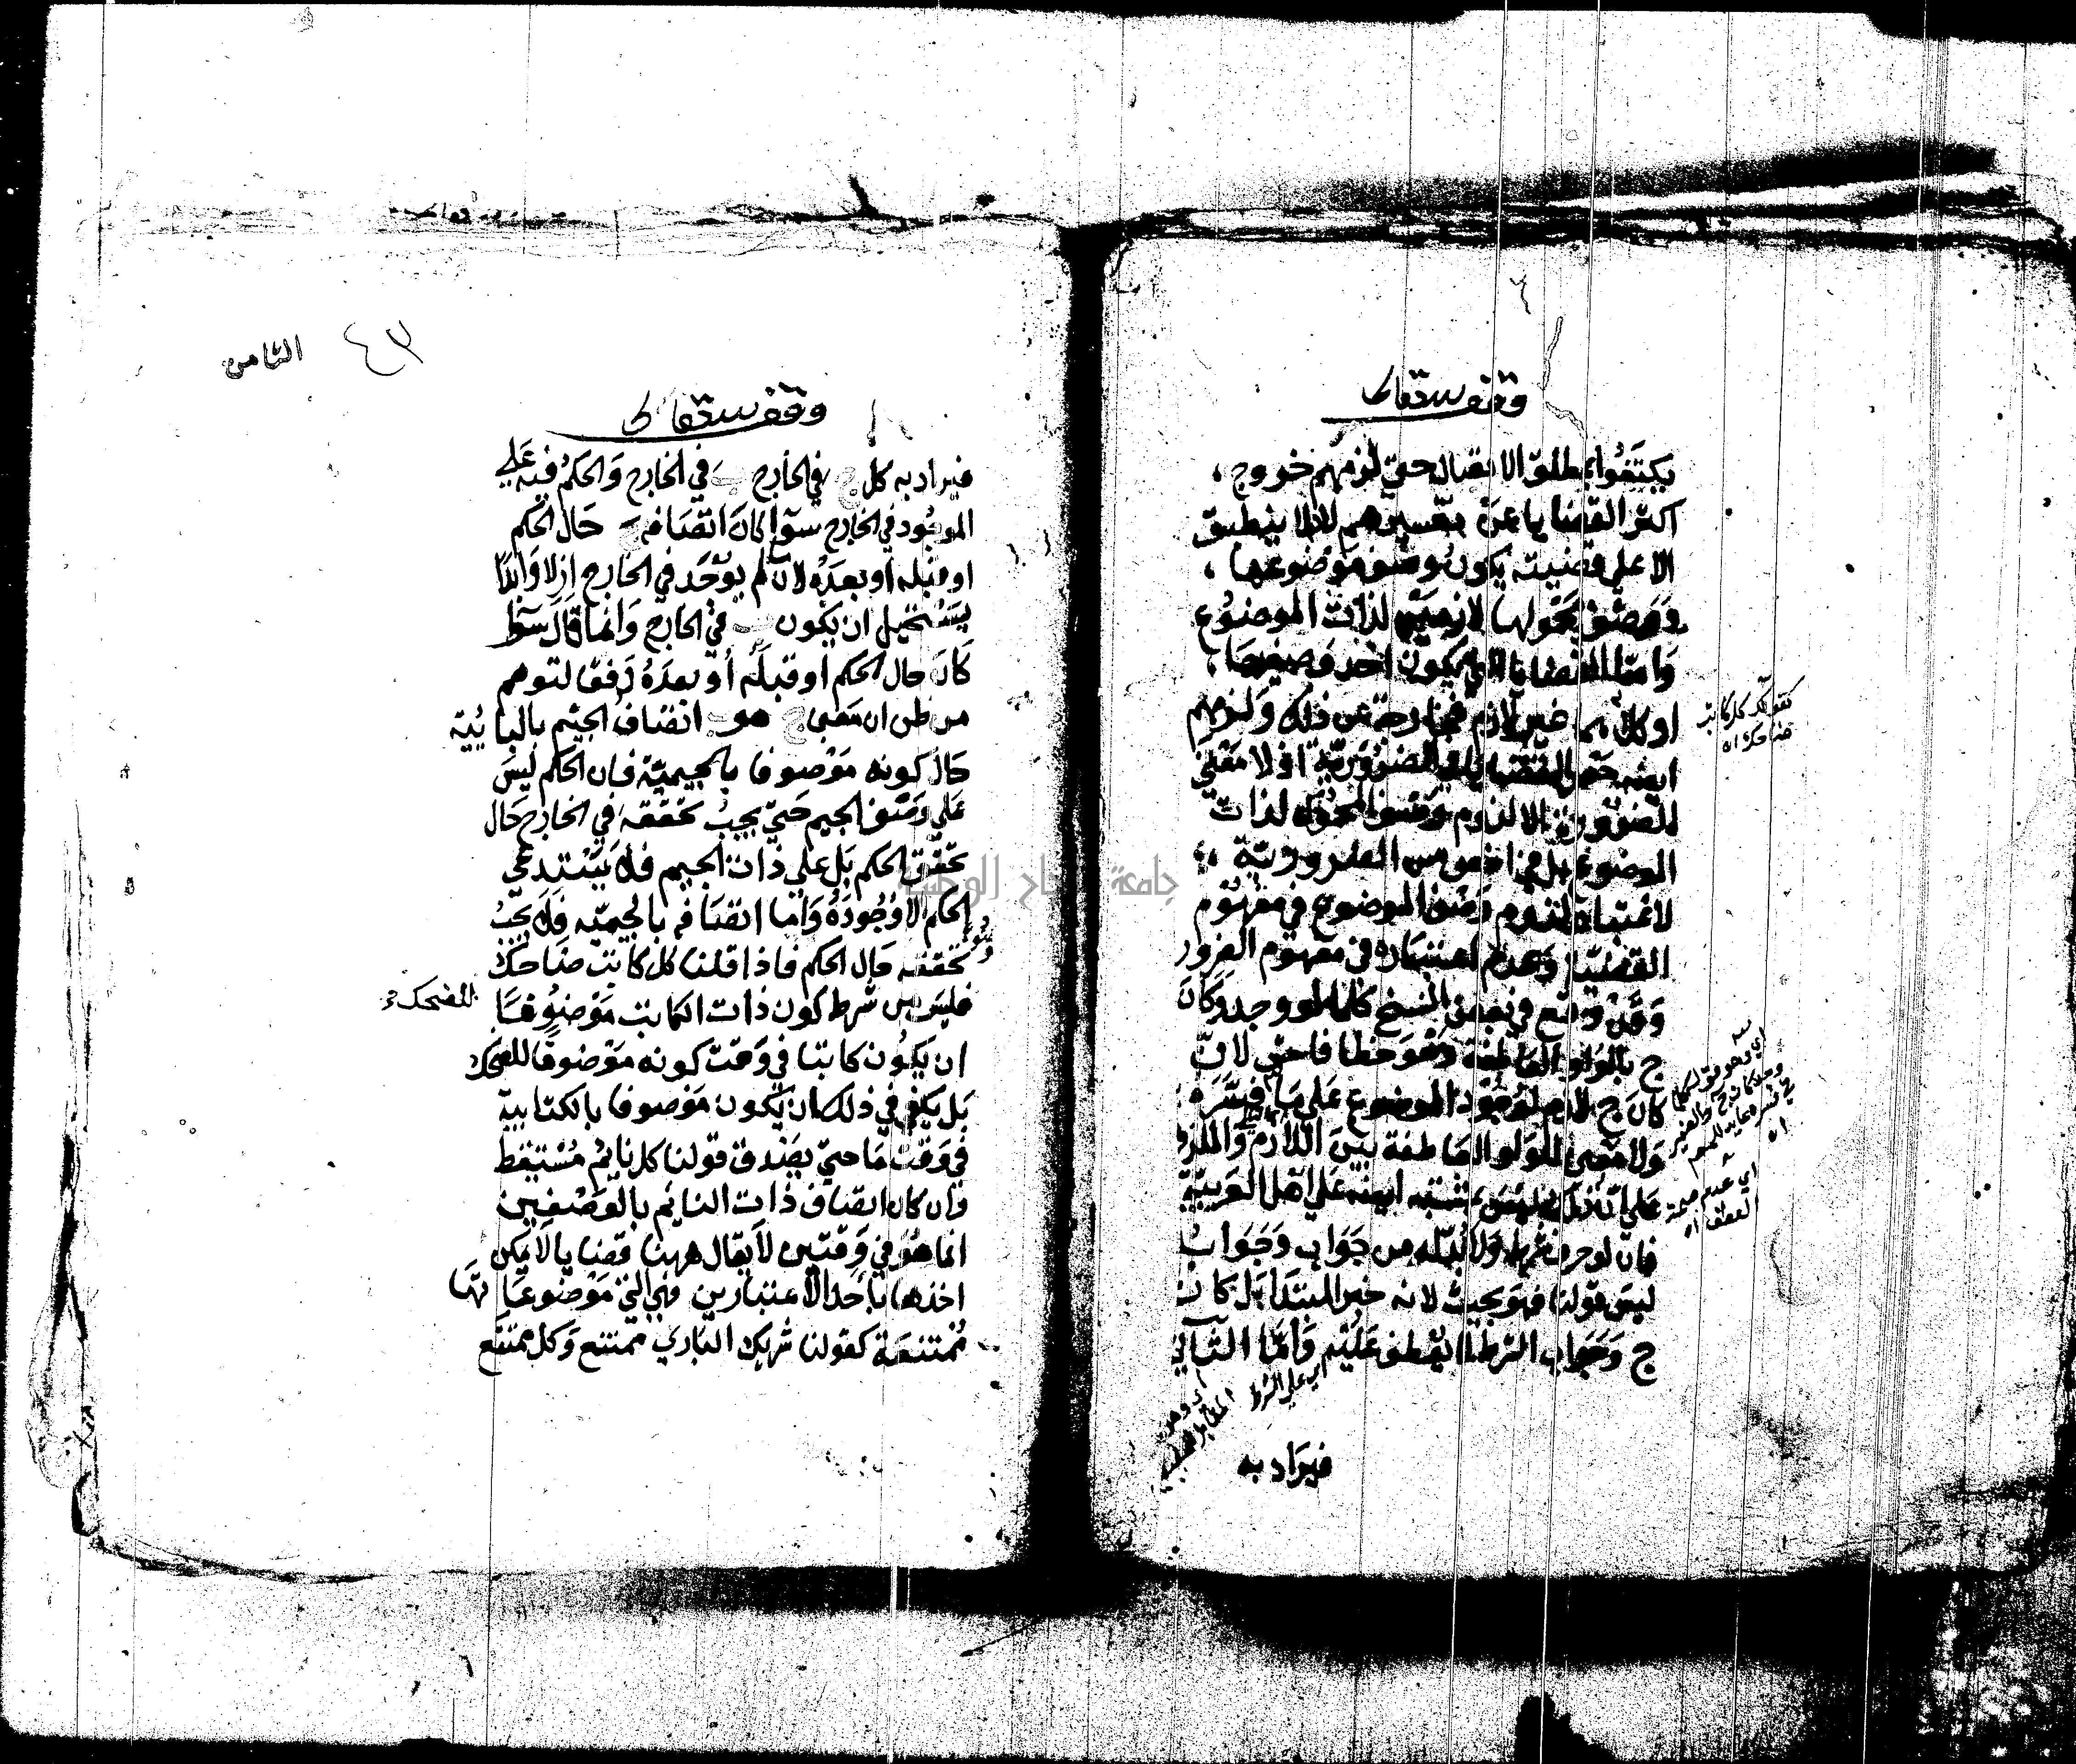 وقف لله تعالى
يكتفوا بمطلق الاتصال حتى لزمهم خروج
اكثر القضايا عن تفسيرهم لانه لا ينطبق
الا على قضية يكون وصف موضوعها
ووصف محمولها لازمين لذات الموضوع
واما القضايا التي يكون احد وصفيها
او كلاهما غير لازم فخارجة عن ذلك ولزمهم
ايضا حصر القضايا في الضرورية اذ لا معنى
للضرورة الا لزوم وصف المحمول لذات
الموضوع بل في اخص من الضرورية
لاعتبار لزوم وصف الموضوع في مفهوم
القضية وعدم اعتباره في مفهوم الضرور
وقد وقع في بعض النسخ كلما لو وجد وكان
ج بالواو العاطفة وهو خطا فاحش لان
كان ج لازم لوجود الموضوع على ما فسره
ولا معنى للواو العاطفة بين اللازم والملزوم
على ان ذلك ليس بمشتبه ايضا على اهل العربية
فان لو حرف شرط ولا بد له من جواب وجواب
ليس قولنا فهو بحيث لانه خبر المبتدا بل كان
ج وجواب الشرط لا يعطف عليه واما الثاني
فيراد به
كقولك كل كاتب
ضاحك اه
اي عدم صحة
العطف اه
اي على الشرط
الثامن
٤٣
وقف لله تعالى
فيراد به كل ج في الخارج ب في الخارج والحكم فيه على
الموجود في الخارج سوآ كان اتصافه ب حال الحكم
او قبله او بعده لان لم يوجد في الخارج ازلا وابدا
يستحيل ان يكون ب في الخارج وانما قال سوآ
كان حال الحكم او قبله أو بعده دفعا لتوهم
من ظن ان معنى ج هو ب اتصاف الجيم بالبائية
حال كونه موصوفا بالجيمية فان الحكم ليس
على وصف الجيم حتى يجب تحققه في الخارج حال
تحقق الحكم بل على ذات الجيم فلا يستدعي
الحكم الا وجوده واما اتصافه بالجيمية فلا يجب
تحققه حال الحكم فاذا قلنا كل كاتب ضاحك
فليس من شرط كون ذات الكاتب موضوعا
للضحك
ان يكون كاتبا في وقت كونه موضوعا للضحك
بل يكفي في ذلك ان يكون موصوفا بالكتابية
في وقت ما حتى يصدق قولنا كل نايم مستيقظ
وان كان اتصاف ذات النايم بالوصفين
انما هو في وقتين لا يقال ههنا قضايا لا يمكن
اخذها باحد الاعتبارين وهي التي موضوعاتها
ممتنعة كقولنا شريك الباري ممتنع وكل ممتنع